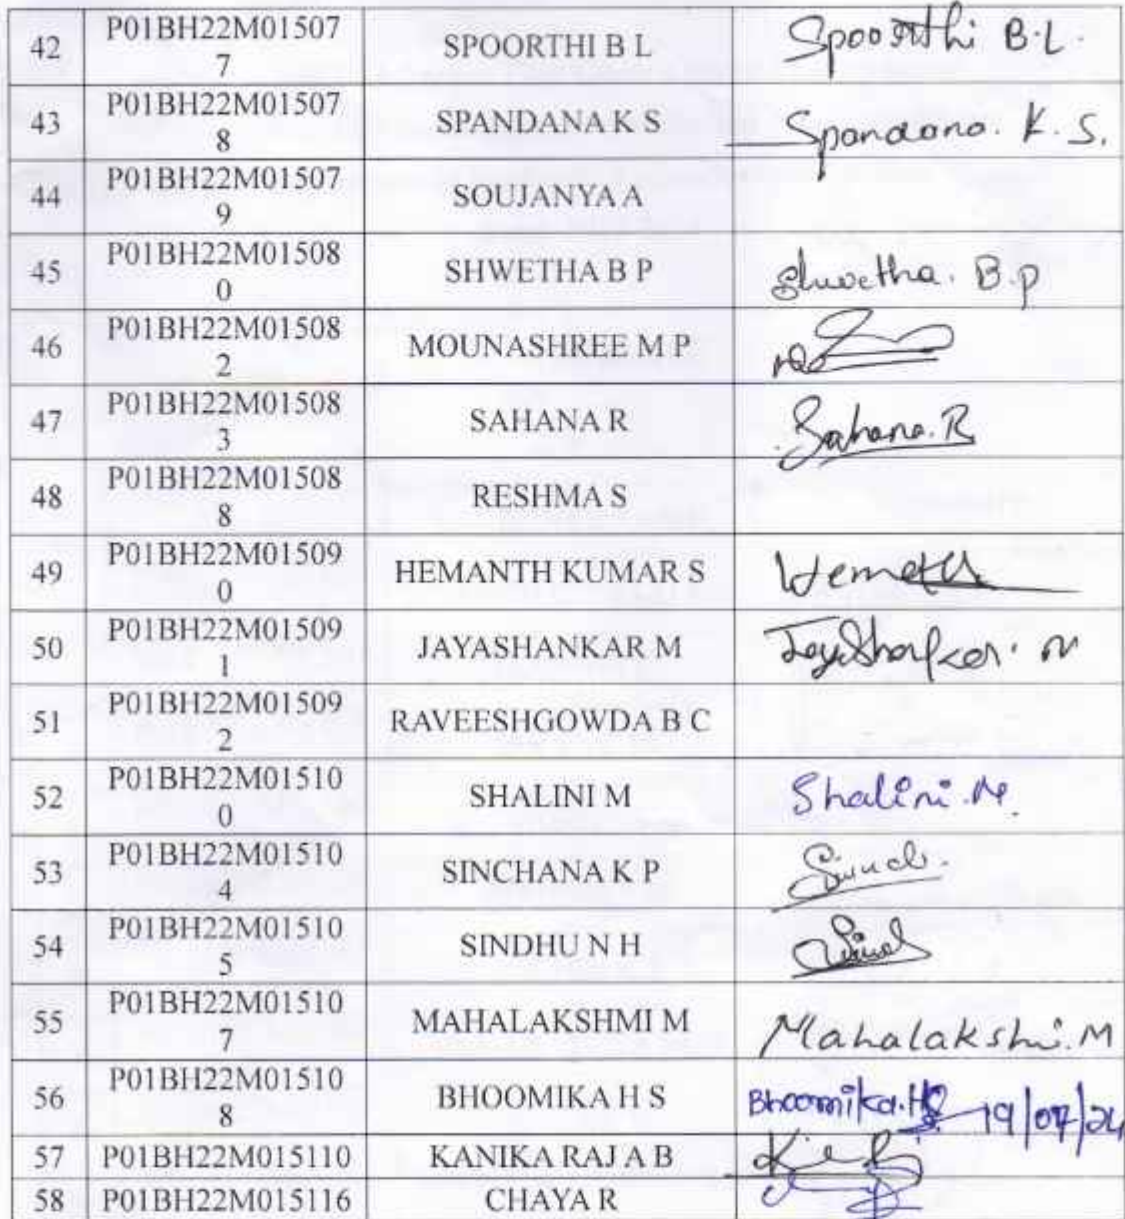 42 P01BH22M01507 SPOORTHI B L Spoorthi B.L.
7
43 P01BH22M01507 SPANDANA K S Spandana. K. S.
8
44 P01BH22M01507 SOUJANYA A
9
45 P01BH22M01508 SHWETHA B P Shwetha. B.P
0
46 P01BH22M01508 MOUNASHREE M P
2
47 P01BH22M01508 SAHANA R Sahana. R
3
48 P01BH22M01508 RESHMA S
8
49 P01BH22M01509 HEMANTH KUMAR S
0
50 P01BH22M01509 JAYASHANKAR M Jayashankar. M
1
51 P01BH22M01509 RAVEESHGOWDA B C
2
52 P01BH22M01510 SHALINI M Shalini.M.
0
53 P01BH22M01510 SINCHANA K P
4
54 P01BH22M01510 SINDHU N H
5
55 P01BH22M01510 MAHALAKSHMI M Mahalakshi.M
7
56 P01BH22M01510 BHOOMIKA H S Bhoomika.HS 19/07/24
8
57 P01BH22M015110 KANIKA RAJ A B
58 P01BH22M015116 CHAYA R